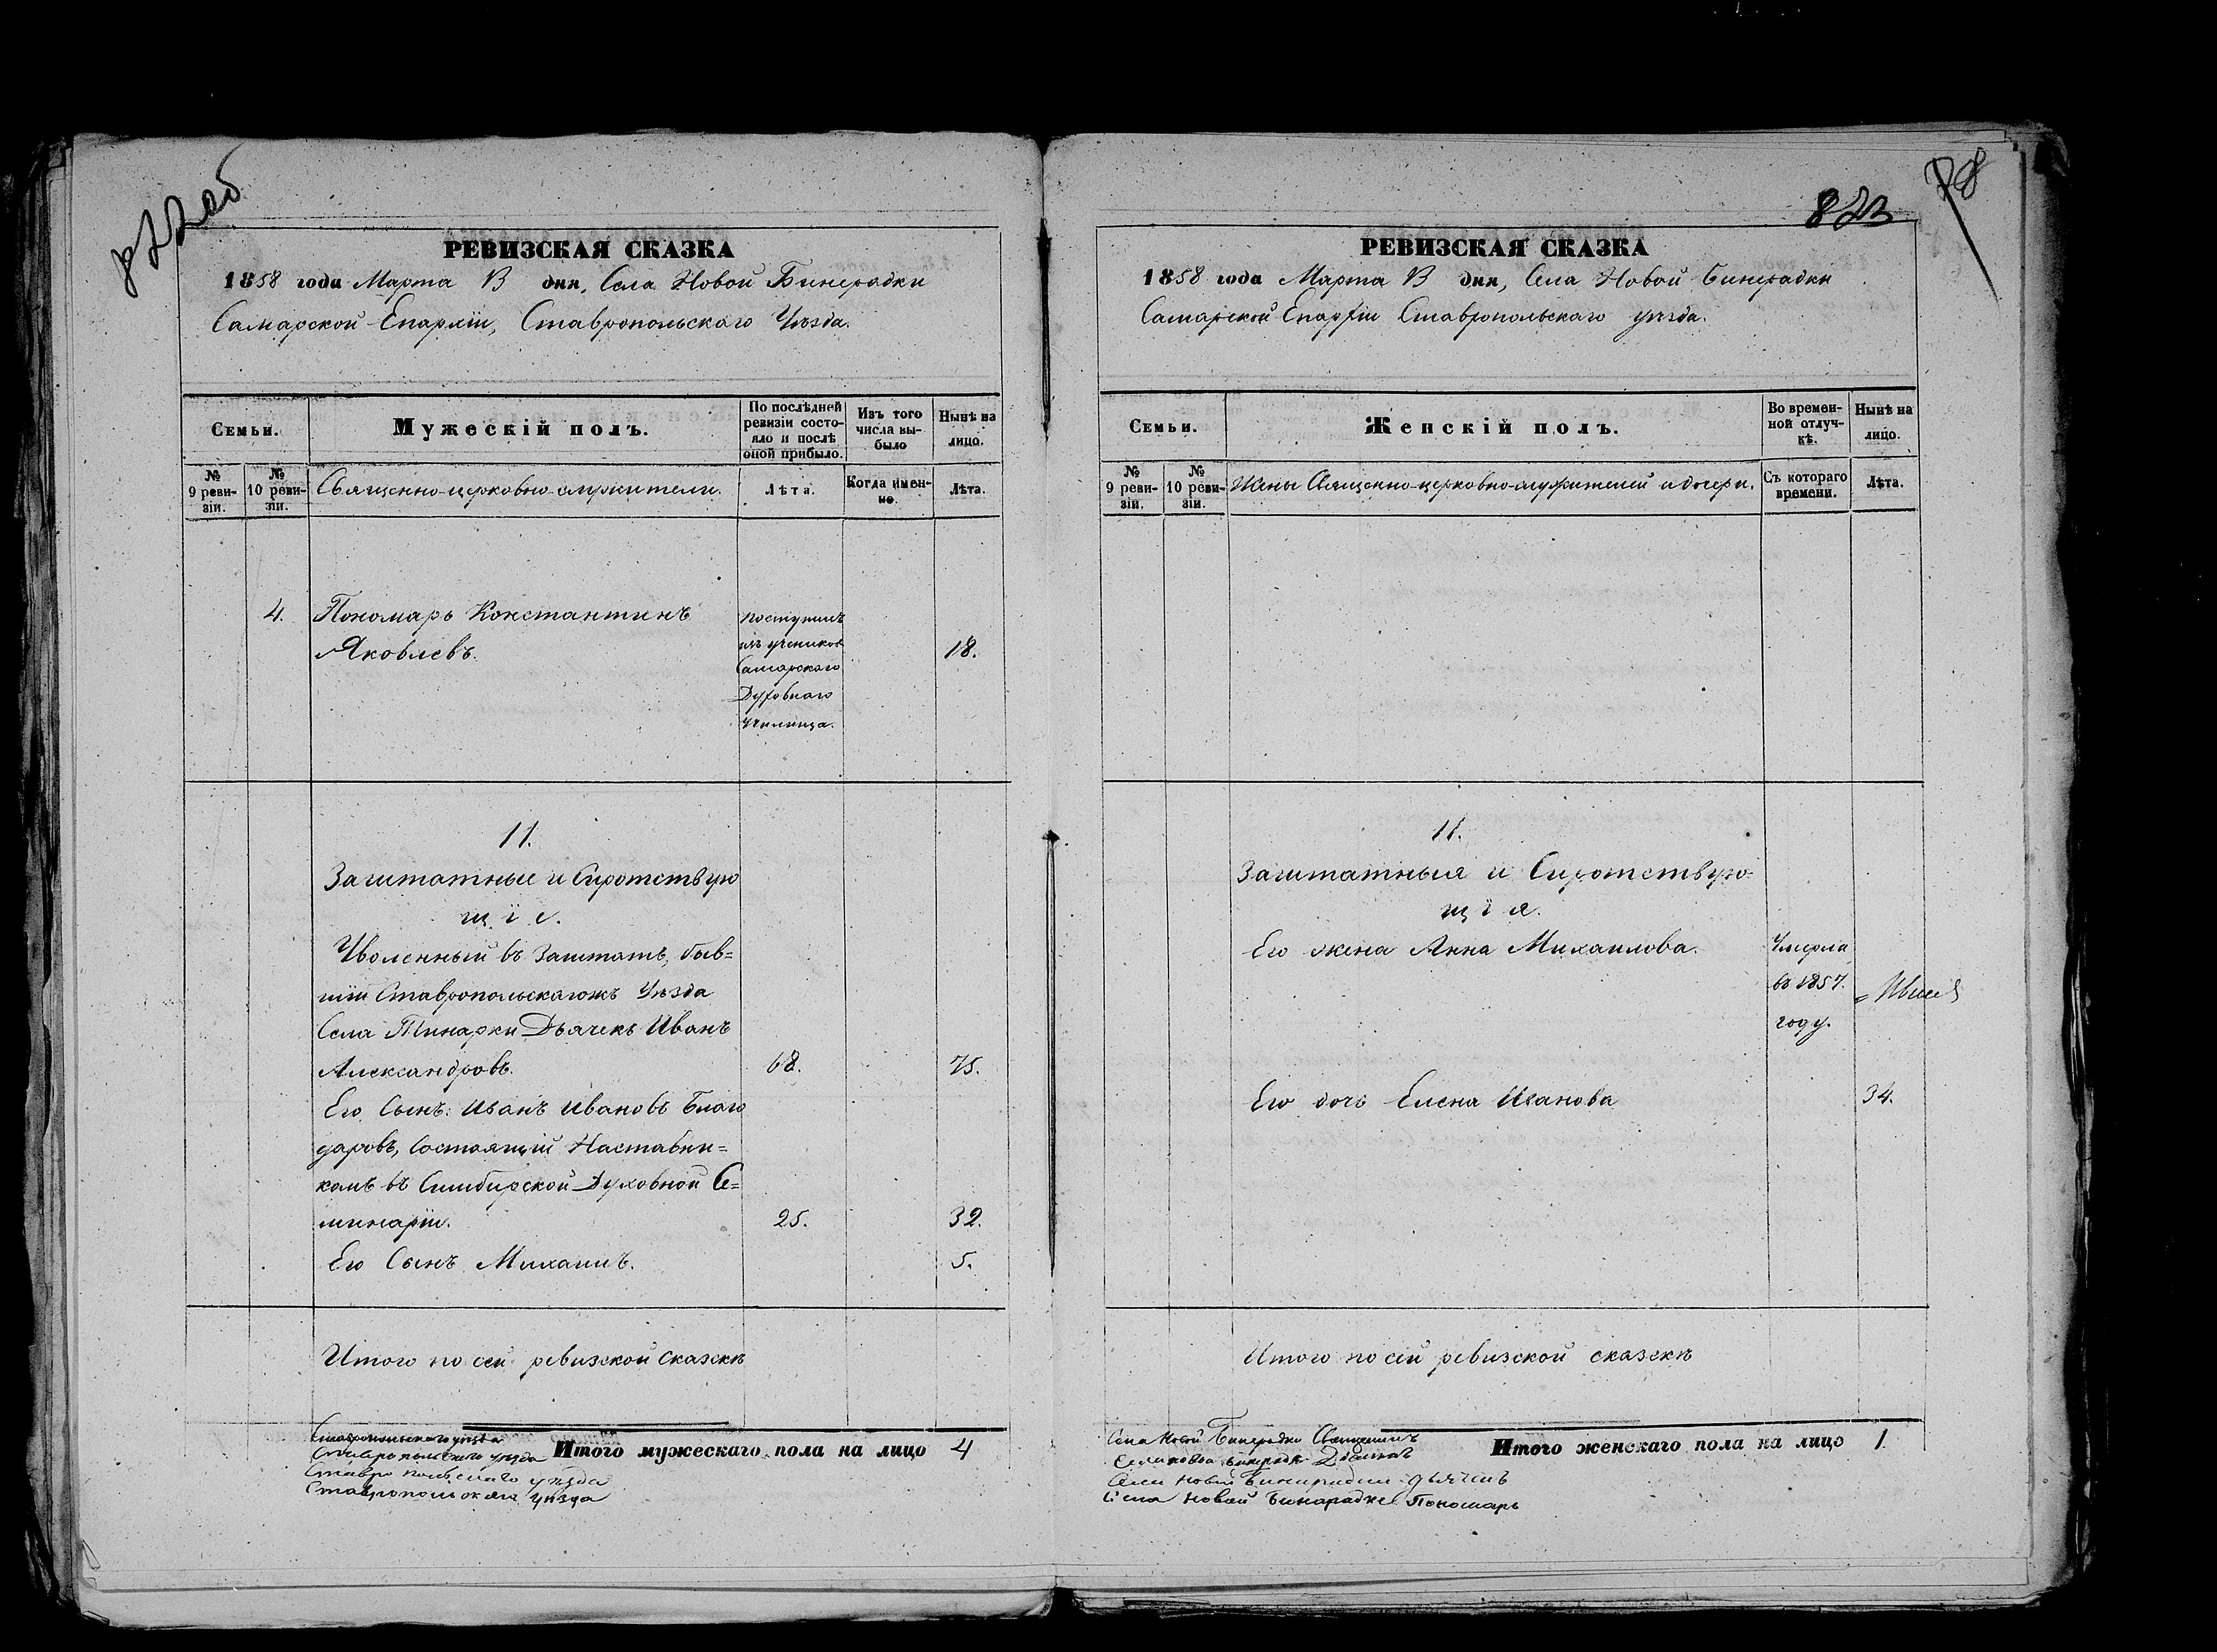 822об
РЕВИЗСКАЯ СКАЗКА
1858 года Марта дня, Села Новой Бинерадки
Самарской Епархіи, Ставропольскаго Уѣзда.
Семьи.
Мужескій полъ.
По послѣдней ревизіи состо-
яло и послѣ
оной прибыло.
Изъ того
числа вы-
было
Нынѣ на
лицо.
№
9 реви-
зіи.
№
10 реви-
зіи.
Священно-церковно-служители.
Лѣта.
Когда имен-
но.
Лѣта.
4. Пономарь Константинъ
Яковлевъ. 18.
поступилъ
изъ учениковъ
Самарскаго
Духовнаго
Училища.
11.
Заштатные и Сиротствую
щіе.
Уволенный въ Заштатъ, быв=
шій Ставропольскагожъ Уѣзда
Села Тинарки Дьячекъ Иванъ
Александровъ. 68. 75.
Его Сынъ: Иванъ Ивановъ Благо
даровъ, состоящій Наставни=
комъ въ Симбирской Духовной Се=
минаріи. 25. 32.
Его Сынъ Михаилъ. 5.
Итого по сей ревизской сказкѣ
Итого мужескаго пола на лицо 4
Ставропольскаго уѣзда
Ставропольскаго уѣзда
Ставропольскаго уѣзда
Ставропольскаго уѣзда
823
78
РЕВИЗСКАЯ СКАЗКА
1858 года Марта дня, Села Новой Бинерадки
Самарской Епархіи Ставропольскаго уѣзда.
Семьи.
Женскій полъ.
Во времен-
ной отлуч-
кѣ.
Нынѣ на
лицо.
№
9 реви-
зіи.
№
10 реви-
зіи.
Жены Священно-церковно-служителей и дочери.
Съ котораго
времени.
Лѣта.
11.
Заштатныя и Сиротствую=
щія.
Его жена Анна Михаилова.
Умерла
въ 1857.
году.
Его дочь Елена Иванова 34.
Итого по сей ревизской сказкѣ
Итого женскаго пола на лицо 1
Села Новой Бинерадки Священникъ
Села Новой Бинерадки Дьячекъ
Села Новой Бинарадке Пономарь